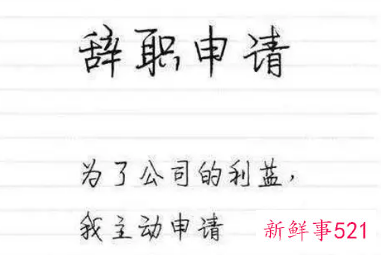 辞职申请
为了公司的利益，
我主动申请
新鲜事521